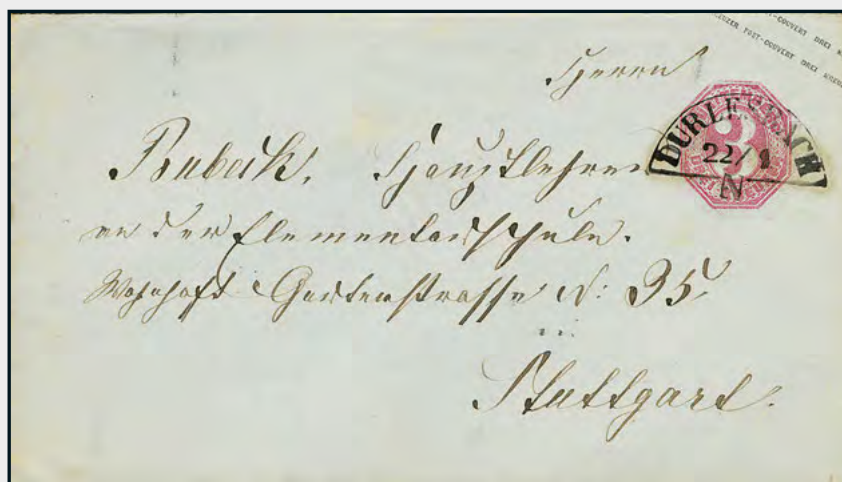 POST-COUVERT DREI
KREUZER POST-COUVERT DREI KREUZER
Herrn
DURLESBACH
22/1
N
3
DREI KREUZER
Bubeck, Hauptlehrer
an der Elementarschule.
Wohnhaft Gartenstrasse N: 35
Stuttgart.